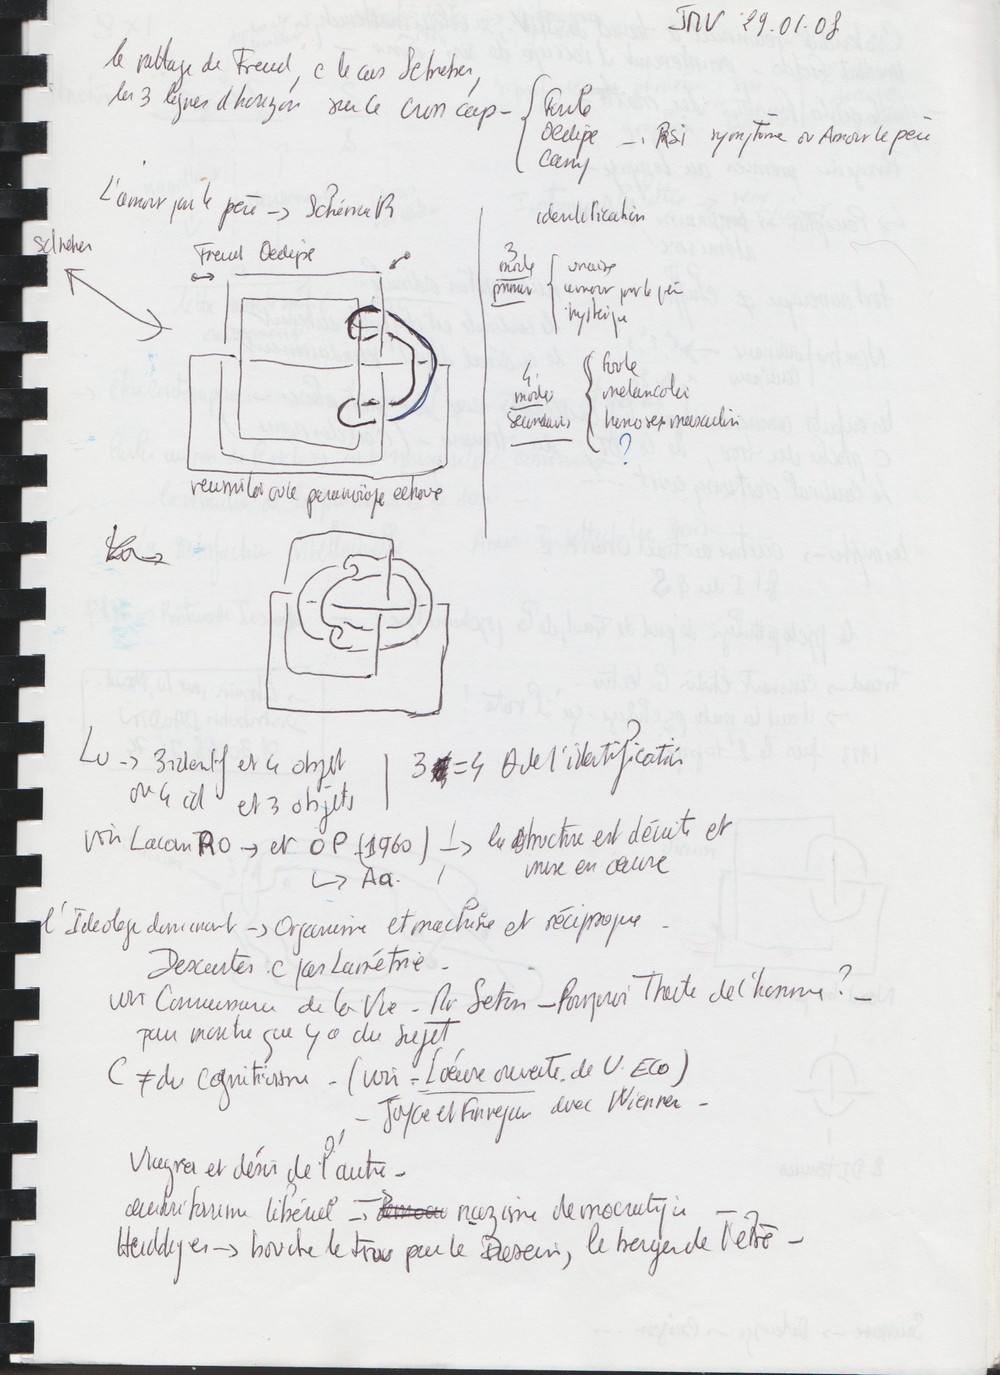 JMV 29.01.08
le ratage de Freud, c le cas Schreber,
les 3 lignes d'horizon sur le cross cap -
Foule
Oedipe → RSI symptôme ou Amour le père
Camp
L'amour par le père → Schéma R
Schreber
Freud Oedipe
réconciliation ou le paranoïaque échoue
identification
3 modes primaires
unaire
amour par le père
hystérique
4 modes secondaires
foule
mélancolie
homosex masculin
?
Lu → 3 identif et 4 objet | 3 = 4 de l'identification
ou 4 id et 3 objets
voir Lacan RO → et OP (1960) → la structure est décrite et
mise en oeuvre
↳ Aa.
l'Idéologie dominant → Organisme et machine et réciproque -
Descartes c pas Lamétrie -
voir Connaissance de la Vie - Pourquoi Traité de l'homme ? -
pour montre que y a du sujet
C ≠ du cognitivisme - (voir = L'oeuvre ouverte de U. ECO)
- Joyce et Finnegan avec Wiener -
Viagra et désir de l'autre -
libéral → nazisme démocratique
Heidegger → bouche le trou par le Dasein, le berger de l'être -